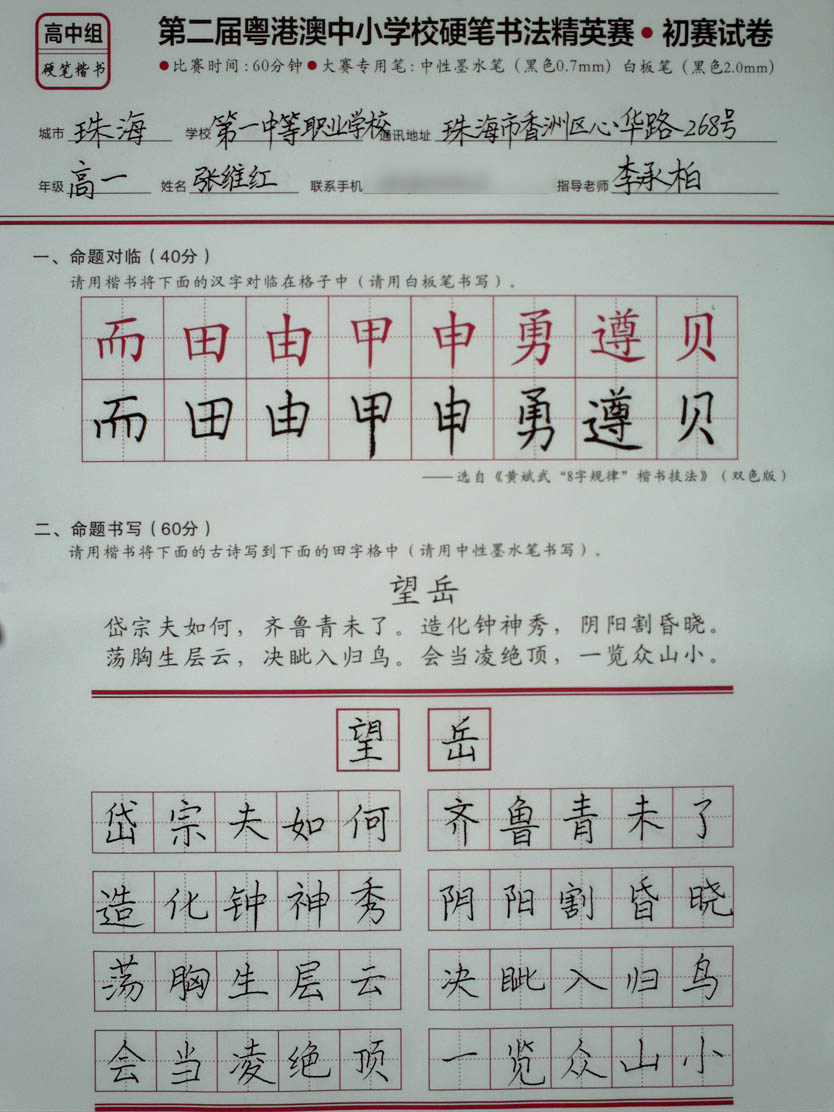 高中组
硬笔楷书
第二届粤港澳中小学校硬笔书法精英赛•初赛试卷
●比赛时间:60分钟●大赛专用笔:中性墨水笔(黑色0.7mm)白板笔(黑色2.0mm)
城市 珠海 学校 第一中等职业学校 通讯地址 珠海市香洲区心华路268号
年级 高一 姓名 张维红 联系手机 指导老师 李承柏
一、命题对临(40分)
请用楷书将下面的汉字对临在格子中(请用白板笔书写)。
而田由甲申勇遵贝
而田由甲申勇遵贝
——选自《黄斌武“8字规律”楷书技法》(双色版)
二、命题书写(60分)
请用楷书将下面的古诗写到下面的田字格中(请用中性墨水笔书写)。
望岳
岱宗夫如何，齐鲁青未了。造化钟神秀，阴阳割昏晓。
荡胸生层云，决眦入归鸟。会当凌绝顶，一览众山小。
望岳
岱宗夫如何 齐鲁青未了
造化钟神秀 阴阳割昏晓
荡胸生层云 决眦入归鸟
会当凌绝顶 一览众山小